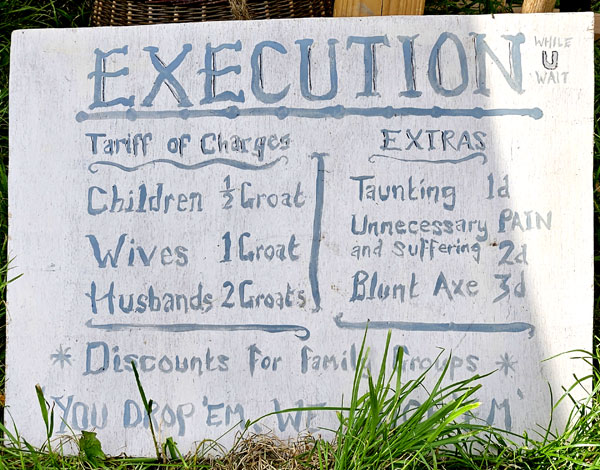 EXECUTION
WHILE
U
WAIT
Tariff of Charges
Children ½ Groat
Wives 1 Groat
Husbands 2 Groats
EXTRAS
Taunting 1d
Unnecessary PAIN
and Suffering 2d
Blunt Axe 3d
* Discounts for family Groups *
YOU DROP 'EM, WE 'EM'